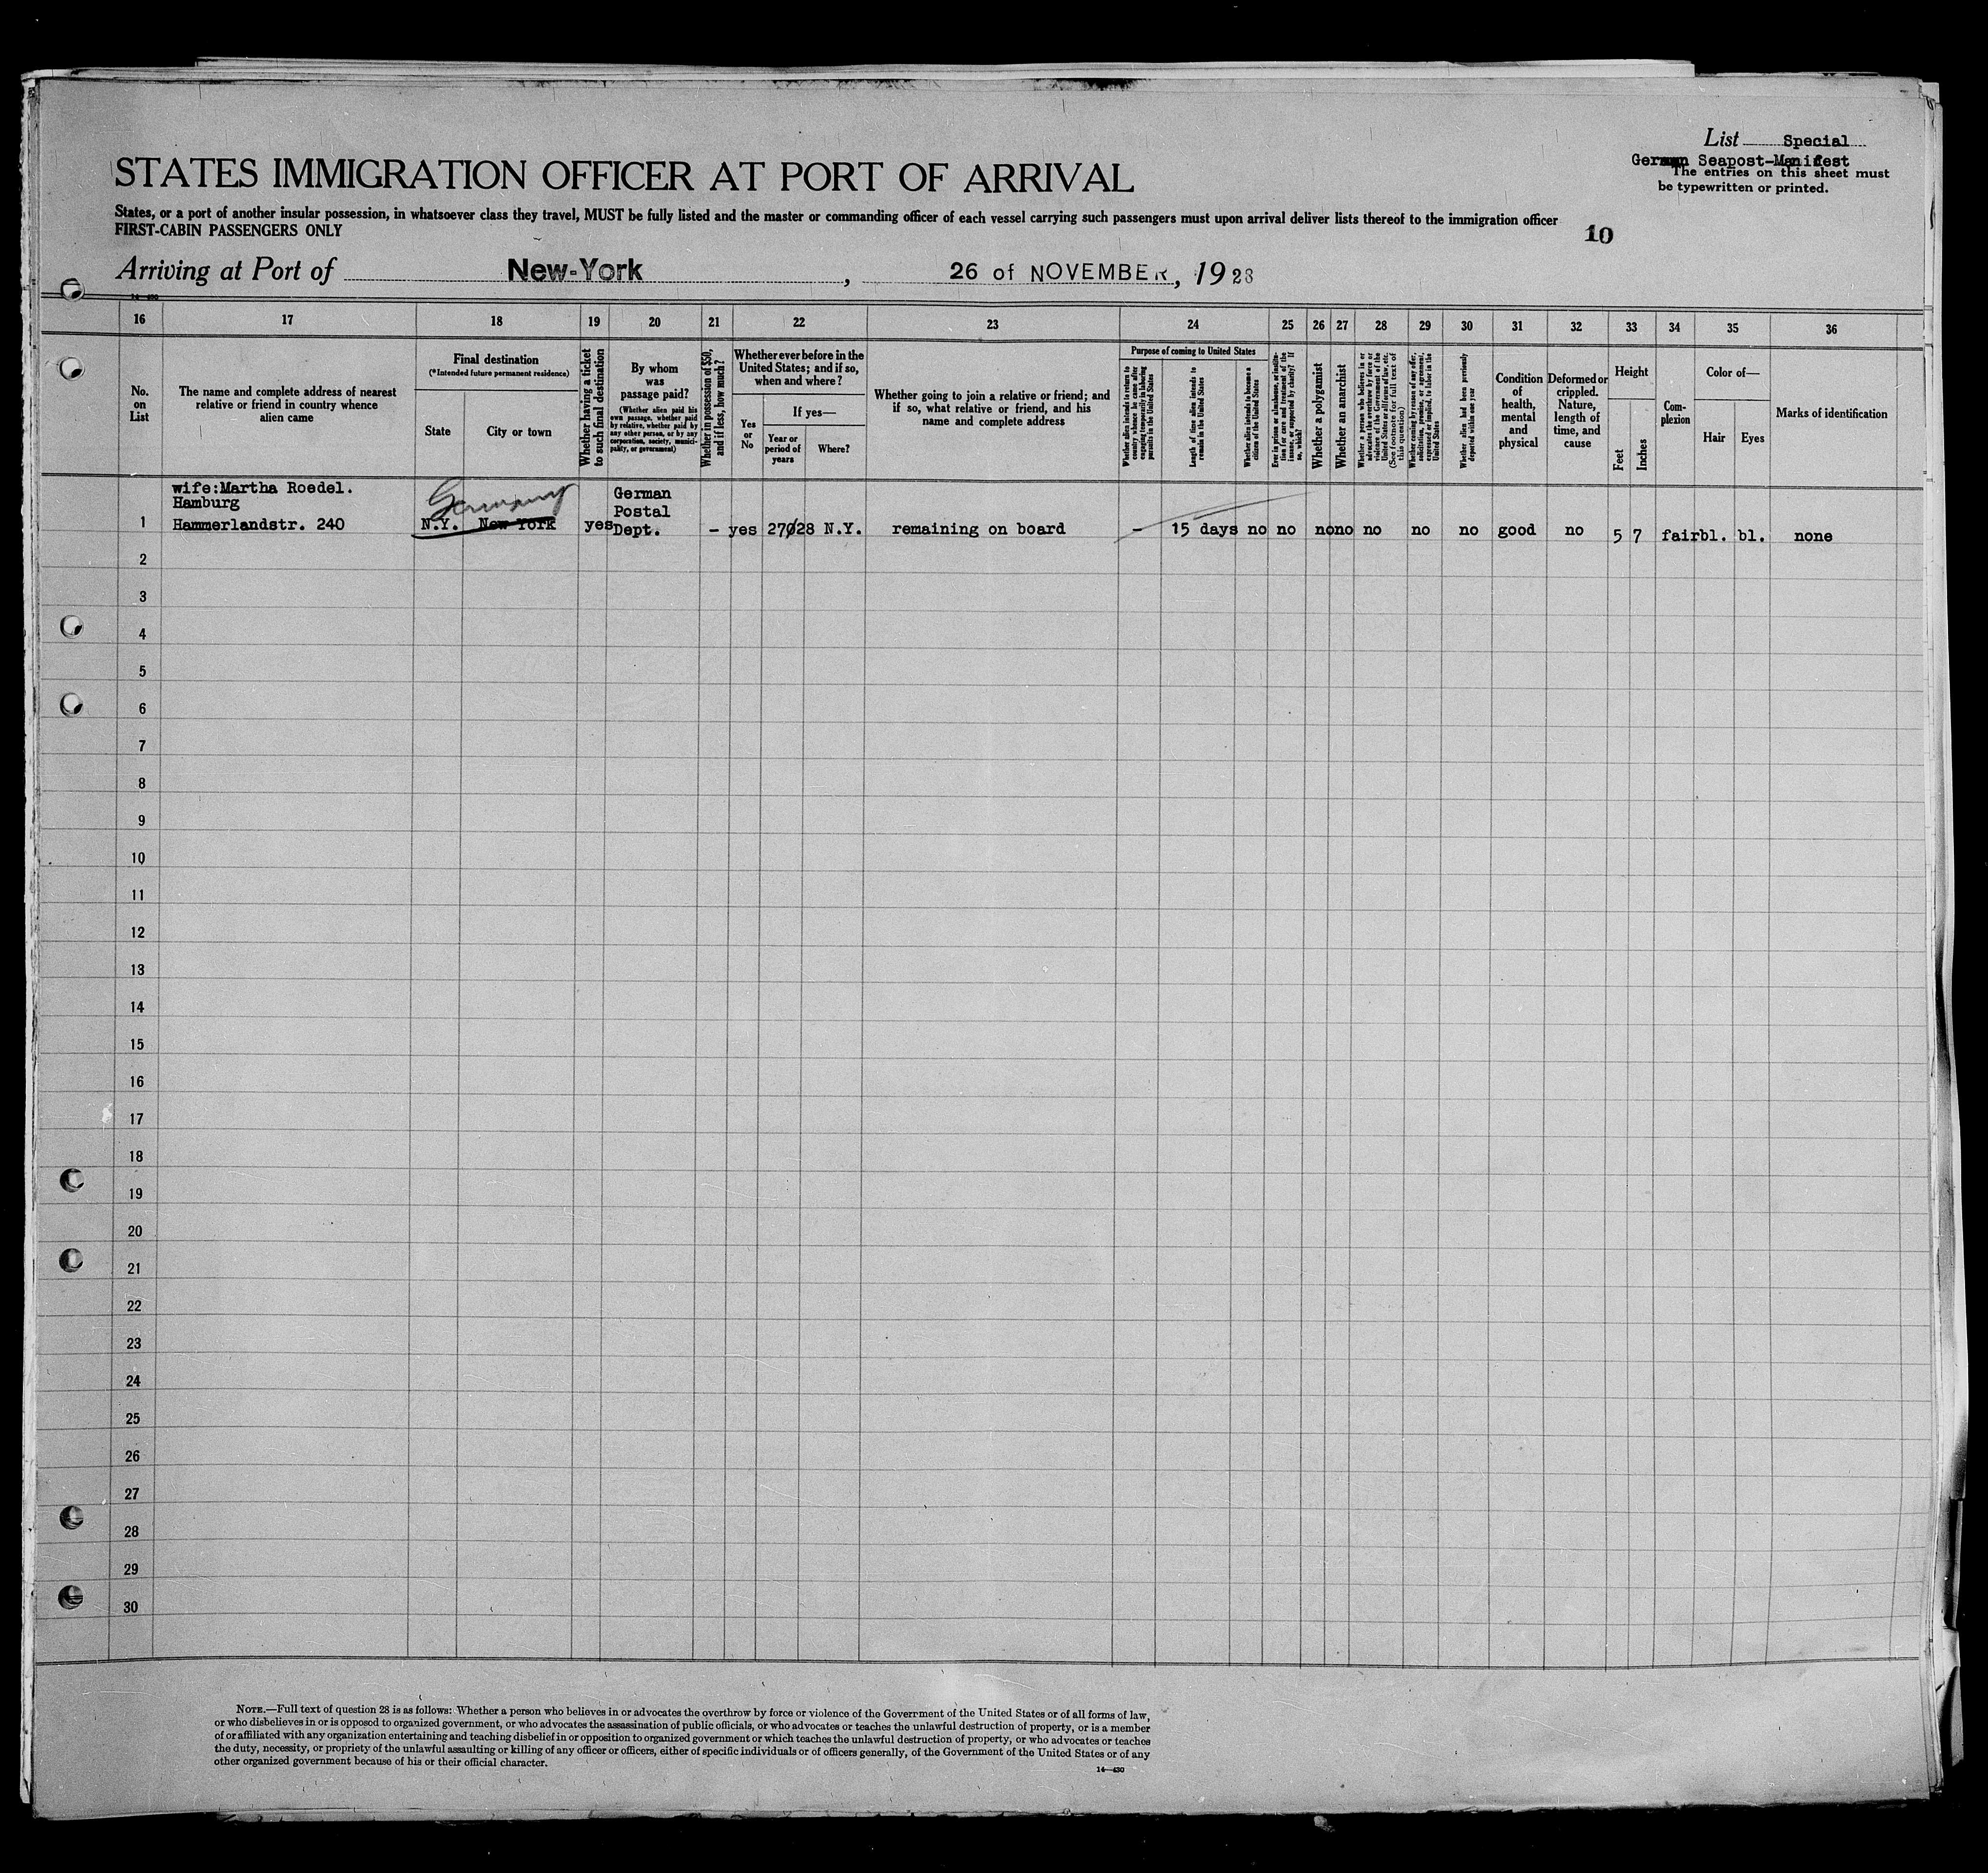 List Special
German Seapost-Manifest
The entries on this sheet must
be typewritten or printed.
STATES IMMIGRATION OFFICER AT PORT OF ARRIVAL
States, or a port of another insular possession, in whatsoever class they travel, MUST be fully listed and the master or commanding officer of each vessel carrying such passengers must upon arrival deliver lists thereof to the immigration officer
FIRST-CABIN PASSENGERS ONLY
10
Arriving at Port of New-York, 26 of NOVEMBER, 1928
14—430
16 17 18 19 20 21 22 23 24 25 26 27 28 29 30 31 32 33 34 35 36
No.
on
List
The name and complete address of nearest
relative or friend in country whence
alien came
Final destination
(*Intended future permanent residence)
State
City or town
Whether having a ticket
to such final destination
By whom
was
passage paid?
(Whether alien paid his
own passage, whether paid
by relative, whether paid by
any other person, or by any
corporation, society, munici-
pality, or government)
Whether in possession of $50,
and if less, how much?
Whether ever before in the
United States; and if so,
when and where?
Yes
or
No
If yes—
Year or
period of
years
Where?
Whether going to join a relative or friend; and
if so, what relative or friend, and his
name and complete address
Purpose of coming to United States
Whether alien intends to return to
country whence he came after
engaging temporarily in laboring
pursuits in the United States
Length of time alien intends to
remain in the United States
Whether alien intends to become a
citizen of the United States
Ever in prison or almshouse, or institu-
tion for care and treatment of the
insane, or supported by charity? If
so, which?
Whether a polygamist
Whether an anarchist
Whether a person who believes in or
advocates the overthrow by force or
violence of the Government of the
United States or all forms of law, etc.
(See footnote for full text of
this question)
Whether coming by reason of any offer,
solicitation, promise, or agreement,
expressed or implied, to labor in the
United States
Whether alien had been previously
deported within one year
Condition
of
health,
mental
and
physical
Deformed or
crippled.
Nature,
length of
time, and
cause
Height
Feet
Inches
Com-
plexion
Color of—
Hair
Eyes
Marks of identification
wife:Martha Roedel.
Hamburg
1 Hammerlandstr. 240
Germany
N.Y. New York
yes
German
Postal
Dept.
- yes 27/28 N.Y. remaining on board - 15 days no no no no no no no good no 5 7 fair bl. bl. none
2
3
4
5
6
7
8
9
10
11
12
13
14
15
16
17
18
19
20
21
22
23
24
25
26
27
28
29
30
NOTE.—Full text of question 28 is as follows: Whether a person who believes in or advocates the overthrow by force or violence of the Government of the United States or of all forms of law,
or who disbelieves in or is opposed to organized government, or who advocates the assassination of public officials, or who advocates or teaches the unlawful destruction of property, or is a member
of or affiliated with any organization entertaining and teaching disbelief in or opposition to organized government or which teaches the unlawful destruction of property, or who advocates or teaches
the duty, necessity, or propriety of the unlawful assaulting or killing of any officer or officers, either of specific individuals or of officers generally, of the Government of the United States or of any
other organized government because of his or their official character.
14—430